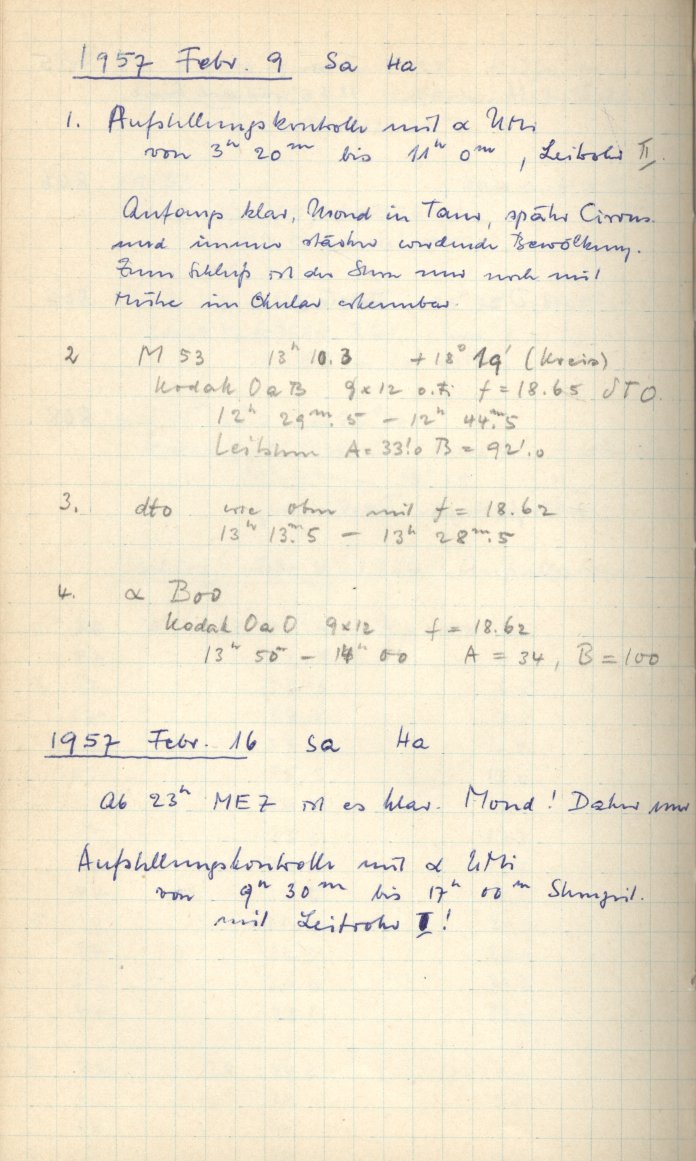 1957 Febr. 9 Sa Ha
1. Aufstellungskontrolle mit α UMi
von 3ʰ 20ᵐ bis 11ʰ 0ᵐ, Leitrohr II.
Anfangs klar, Mond in Taur, später Cirrus
und immer stärker werdende Bewölkung.
Zum Schluß ist der Stern nur noch mit
Mühe im Okular erkennbar.
2 M 53 13ʰ 10.3 +18° 19' (Kreis)
Kodak OaB 9x12 o. Fi f = 18.65
12ʰ 29ᵐ.5 – 12ʰ 44ᵐ.5
Leitstern A = 33!0 B = 92'.0
3. dto wie oben mit f = 18.62
13ʰ 13ᵐ.5 – 13ʰ 28ᵐ.5
4. α Boo
Kodak OaO 9x12 f = 18.62
13ʰ 55 – 14ʰ 00 A = 34, B = 100
1957 Febr. 16 Sa Ha
Ab 23ʰ MEZ ist es klar. Mond! Daher nur
Aufstellungskontrolle mit α UMi
von 9ʰ 30ᵐ bis 17ʰ 00ᵐ Sternzeit.
mit Leitrohr I!